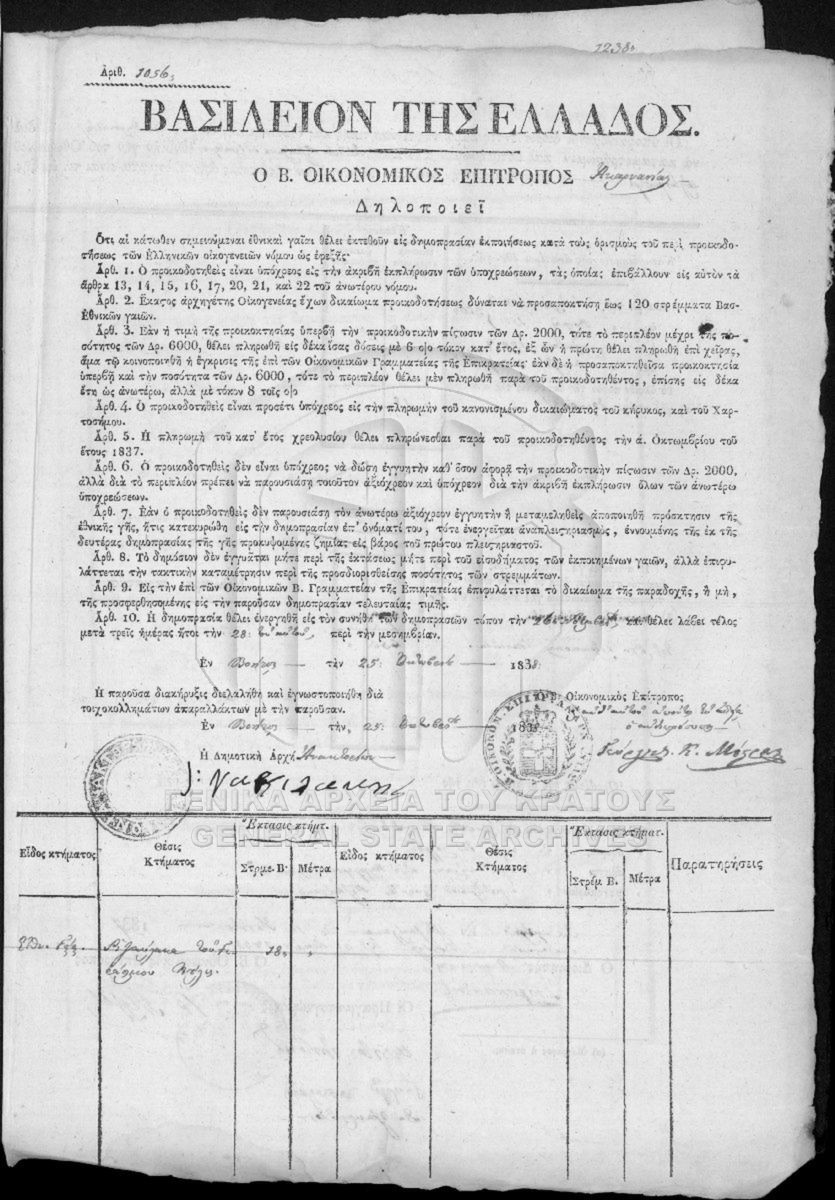 1238
Ἀριθ. 1056
ΒΑΣΙΛΕΙΟΝ ΤΗΣ ΕΛΛΑΔΟΣ.
Ο Β. ΟΙΚΟΝΟΜΙΚΟΣ ΕΠΙΤΡΟΠΟΣ Ακαρνανίας
Δηλοποιεῖ
Ὅτι αἱ κάτωθεν σημειούμεναι ἐθνικαὶ γαῖαι θέλει ἐκτεθοῦν εἰς δημοπρασίαν ἐκποιήσεως κατὰ τοὺς ὁρισμοὺς τοῦ περὶ προικοδο-
τήσεως τῶν Ἑλληνικῶν οἰκογενειῶν νόμου ὡς ἐφεξῆς·
Ἄρθ. 1. Ὁ προικοδοτηθεὶς εἶναι ὑπόχρεος εἰς τὴν ἀκριβῆ ἐκπλήρωσιν τῶν ὑποχρεώσεων, τὰς ὁποίας ἐπιβάλλουν εἰς αὐτὸν τὰ
ἄρθρα 13, 14, 15, 16, 17, 20, 21, καὶ 22 τοῦ ἀνωτέρω νόμου.
Ἄρθ. 2. Ἕκαστος ἀρχηγέτης Οἰκογενείας ἔχων δικαίωμα προικοδοτήσεως δύναται νὰ προσαποκτήσῃ ἕως 120 στρέμματα Βασ.
Ἐθνικῶν γαιῶν.
Ἄρθ. 3. Ἐὰν ἡ τιμὴ τῆς προικοκτησίας ὑπερβῇ τὴν προικοδοτικὴν πίστωσιν τῶν Δρ. 2000, τότε τὸ περιπλέον μέχρι τῆς πο-
σότητος τῶν Δρ. 6000, θέλει πληρωθῆ εἰς δέκα ἴσας δόσεις μὲ 6 ο)ο τόκον κατ' ἔτος, ἐξ ὧν ἡ πρώτη θέλει πληρωθῆ ἐπὶ χεῖρας,
ἅμα τῷ κοινοποιηθῇ ἡ ἔγκρισις τῆς ἐπὶ τῶν Οἰκονομικῶν Γραμματείας τῆς Ἐπικρατείας· ἐὰν δὲ ἡ προσαποκτηθεῖσα προικοκτησία
ὑπερβῇ καὶ τὴν ποσότητα τῶν Δρ. 6000, τότε τὸ περιπλέον θέλει μὲν πληρωθῆ παρὰ τοῦ προικοδοτηθέντος, ἐπίσης εἰς δέκα
ἔτη ὡς ἀνωτέρω, ἀλλὰ μὲ τόκον 8 τοῖς ο)ο
Ἄρθ. 4. Ὁ προικοδοτηθεὶς εἶναι προσέτι ὑπόχρεος εἰς τὴν πληρωμὴν τοῦ κανονισμένου δικαιώματος τοῦ κήρυκος, καὶ τοῦ Χαρ-
τοσήμου.
Ἄρθ. 5. Ἡ πληρωμὴ τοῦ κατ' ἔτος χρεολυσίου θέλει πληρώνεσθαι παρὰ τοῦ προικοδοτηθέντος τὴν ά. Ὀκτωμβρίου τοῦ
ἔτους 1837.
Ἄρθ. 6. Ὁ προικοδοτηθεὶς δὲν εἶναι ὑπόχρεος νὰ δώσῃ ἐγγυητὴν καθ' ὅσον ἀφορᾷ τὴν προικοδοτικὴν πίστωσιν τῶν Δρ. 2000,
ἀλλὰ διὰ τὸ περιπλέον πρέπει νὰ παρουσιάσῃ τοιοῦτον ἀξιόχρεον καὶ ὑπόχρεον διὰ τὴν ἀκριβῆ ἐκπλήρωσιν ὅλων τῶν ἀνωτέρω
ὑποχρεώσεων.
Ἄρθ. 7. Ἐὰν ὁ προικοδοτηθεὶς δὲν παρουσιάσῃ τὸν ἀνωτέρω ἀξιόχρεον ἐγγυητὴν ἢ μεταμεληθεὶς ἀποποιηθῇ πρόσκτησιν τῆς
ἐθνικῆς γῆς, ἥτις κατεκυρώθη εἰς τὴν δημοπρασίαν ἐπ' ὀνόματί του, τότε ἐνεργεῖται ἀναπλειστηριασμός, ἐννουμένης τῆς ἐκ τῆς
δευτέρας δημοπρασίας τῆς γῆς προκυψομένης ζημίας εἰς βάρος τοῦ πρώτου πλειστηριαστοῦ.
Ἄρθ. 8. Τὸ δημόσιον δὲν ἐγγυᾶται μήτε περὶ τῆς ἐκτάσεως μήτε περὶ τοῦ εἰσοδήματος τῶν ἐκποιημένων γαιῶν, ἀλλὰ ἐπιφυ-
λάττεται τὴν τακτικὴν καταμέτρησιν περὶ τῆς προσδιορισθείσης ποσότητος τῶν στρεμμάτων.
Ἄρθ. 9. Εἰς τὴν ἐπὶ τῶν Οἰκονομικῶν Β. Γραμματείαν τῆς Ἐπικρατείας ἐπιφυλάττεται τὸ δικαίωμα τῆς παραδοχῆς, ἢ μὴ,
τῆς προσφερθησομένης εἰς τὴν παροῦσαν δημοπρασίαν τελευταίας τιμῆς.
Ἄρθ. 10. Ἡ δημοπρασία θέλει ἐνεργηθῆ εἰς τὸν συνήθη τῶν δημοπρασιῶν τόπον τὴν 26 καὶ θέλει λάβει τέλος
μετὰ τρεῖς ἡμέρας ἤτοι τὴν 28: τοῦ αὐτοῦ, περὶ τὴν μεσημβρίαν.
Ἐν τὴν 25: 1838:
Ἡ παροῦσα διακήρυξις διελαλήθη καὶ ἐγνωστοποιήθη διὰ
τοιχοκολλημάτων ἀπαραλλάκτων μὲ τὴν παροῦσαν.
Ἐν τὴν, 25: 183
Ὁ Οἰκονομικὸς Ἐπίτροπος
Ἡ Δημοτικὴ Ἀρχή
ΓΕΝΙΚΑ ΑΡΧΕΙΑ ΤΟΥ ΚΡΑΤΟΥΣ
GENERAL STATE ARCHIVES
Εἶδος κτήματος Θέσις Κτήματος Ἔκτασις κτήματ. Στρεμ. Β. Μέτρα Εἶδος κτήματος Θέσις Κτήματος Ἔκτασις κτήματ. Στρέμ Β. Μέτρα Παρατηρήσεις
18